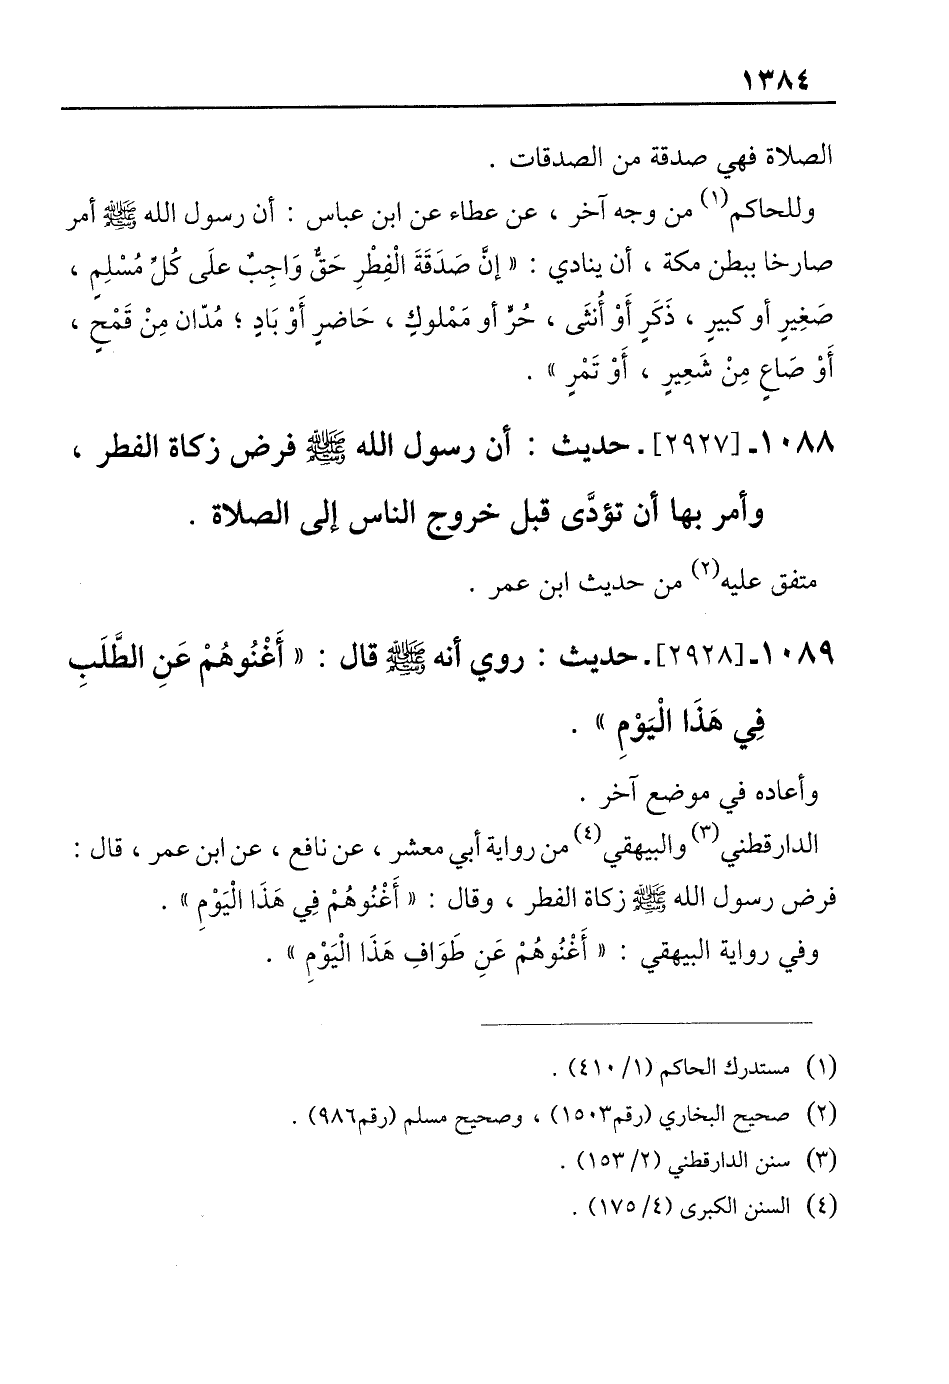 ١٣٨٤
الصلاة فهي صدقة من الصدقات .
وللحاكم(١) من وجه آخر ، عن عطاء عن ابن عباس : أن رسول الله ﷺ أمر
صارخا ببطن مكة ، أن ينادي : « إنَّ صَدَقَةَ الْفِطْرِ حَقٌّ وَاجِبٌ علَى كُلِّ مُسْلِمٍ ،
صَغِيرٍ أو كبيرٍ ، ذَكَرٍ أَوْ أُنثَى ، حُرٍّ أو مَمْلوكٍ ، حَاضرٍ أَوْ بَادٍ ؛ مُدّان مِنْ قَمْحٍ ،
أَوْ صَاعٍ مِنْ شَعِيرٍ ، أَوْ تَمْرٍ » .
١٠٨٨ـ [٢٩٢٧]. حديث : أن رسول الله ﷺ فرض زكاة الفطر ،
وأمر بها أن تؤدَّى قبل خروج الناس إلى الصلاة .
متفق عليه(٢) من حديث ابن عمر .
١٠٨٩ـ [٢٩٢٨]. حديث : روي أنه ﷺ قال : « أَغْنُوهُمْ عَنِ الطَّلَبِ
فِي هَذَا الْيَوْمِ » .
وأعاده في موضع آخر .
الدارقطني(٣) والبيهقي(٤) من رواية أبي معشر ، عن نافع ، عن ابن عمر ، قال :
فرض رسول الله ﷺ زكاة الفطر ، وقال : « أَغْنُوهُمْ فِي هَذَا الْيَوْمِ » .
وفي رواية البيهقي : « أَغْنُوهُمْ عَنِ طَوَافِ هَذَا الْيَوْمِ » .
(١) مستدرك الحاكم (١/ ٤١٠) .
(٢) صحيح البخاري (رقم١٥٠٣) ، وصحيح مسلم (رقم٩٨٦) .
(٣) سنن الدارقطني (٢/ ١٥٣) .
(٤) السنن الكبرى (٤/ ١٧٥) .